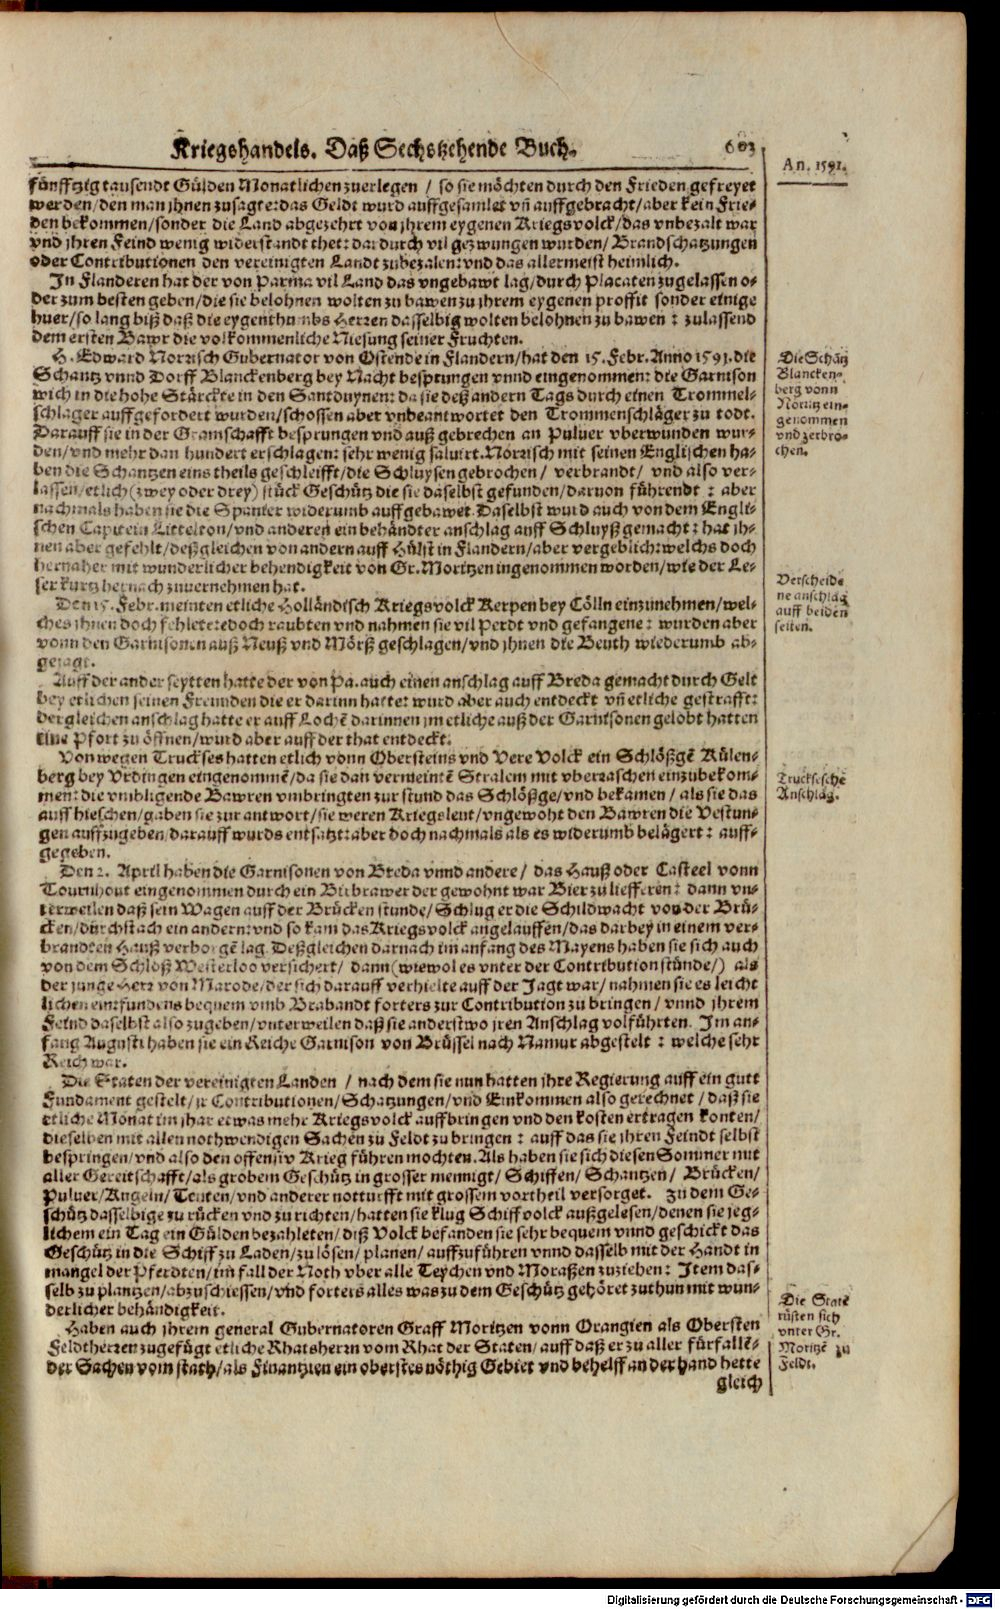 Kriegshandels. Daß Sechstzehende Buch. 603
An. 1591.
fünfftzig tausendt Gülden Monatlichen zuerlegen / so sie möchten durch den Frieden gefreyet
werden/den man jhnen zusagte:das Geldt wurd auffgesamlet vñ auffgebracht/aber kein Frie-
den bekommen/sonder die Land abgezehrt von jhrem eygenen Kriegsvolck/das vnbezalt war
vnd jhren Feind wenig widerstandt thet: dardurch vil gezwungen wurden/Brandschatzungen
oder Contributionen den vereinigten Landt zubezalen:vnd das allermeist heimlich.
In Flanderen hat der von Parma vil Land das vngebawt lag/durch Placaten zugelassen o-
der zum besten geben/die sie belohnen wolten zu bawen zu jhrem eygenen proffit sonder einige
huer/so lang biß daß die eygenthumbs Herren dasselbig wolten belohnen zu bawen : zulassend
dem ersten Bawr die volkommenliche Niesung seiner Fruchten.
H. Edward Norrisch Gubernator von Ostende in Flandern/hat den 15. Febr. Anno 1591. die
Schantz vnnd Dorff Blanckenberg bey Nacht besprungen vnnd eingenommen: die Garnison
wich in die hohe Stärckte in den Santduynen: da sie deß andern Tags durch einen Trommel-
schlager auffgefordert wurden/schossen aber vnbeantwortet den Trommenschläger zu todt.
Darauff sie in der Gramschafft besprungen vnd auß gebrechen an Puluer vberwunden wur-
den/vnd mehr dan hundert erschlagen: sehr wenig saluirt. Norrisch mit seinen Englischen ha-
ben die Schantzen eins theils geschleifft/die Schluysen gebrochen / verbrandt/ vnd also ver-
lassen/etlich (zwey oder drey) stück Geschütz die sie daselbst gefunden/daruon führendt : aber
nachmals haben sie die Spanier widerumb auffgebawet. Daselbst wurd auch von dem Engli-
schen Capitein Littelton/vnd anderen ein behändter anschlag auff Schluyß gemacht: hat jh-
nen aber gefehlt/deßgleichen von andern auff Hülst in Flandern/aber vergeblich:welchs doch
hernaher mit wunderlicher behendigkeit von Gr. Moritzen ingenommen worden/wie der Le-
ser kurtz hernach zuvernehmen hat.
Den 15. Febr. meinten etliche Holländisch Kriegsvolck Kerpen bey Cölln einzunehmen/wel-
ches jhnen doch fehlete:edoch raubten vnd nahmen sie vil Perdt vnd gefangene : wurden aber
vonn den Garnisonen auß Neuß vnd Mörß geschlagen/vnd jhnen die Beuth wiederumb ab-
gejagt.
Auff der ander seytten hatte der von Pa. auch einen anschlag auff Breda gemacht durch Gelt
bey etlichen seinen Freunden die er darinn hatte: wurd aber auch entdeckt vñ etliche gestrafft:
dergleichen anschlag hatte er auff Lochē darinnen jm etliche auß der Garnisonen gelobt hatten
eine Pfort zu öffnen/wurd aber auff der that entdeckt.
Von wegen Truckses hatten etlich vonn Obersteins vnd Vere Volck ein Schlößgē Külen-
berg bey Vrdingen eingenommē/da sie dan vermeintē Stralem mit vberraschen einzubekom-
men: die vmbligende Bawren vmbringten zur stund das Schlößge/vnd bekamen / als sie das
auff hieschen/gaben sie zur antwort/sie weren Kriegsleut/vngewoht den Bawren die Vestun-
gen auffzugeben/darauff wurds entsatzt: aber doch nachmals als es widerumb belägert : auff-
gegeben.
Den 2. April haben die Garnisonen von Breda vnnd andere/ das Hauß oder Casteel vonn
Tournhout eingenommen durch ein Birbrawer der gewohnt war Bier zu liefferen: dann vn-
terweilen daß sein Wagen auff der Brücken stunde/Schlug er die Schildwacht von der Brü-
cken/durchstach ein andern: vnd so kam das Kriegsvolck angelauffen/das darbey in einem ver-
brandten Hauß verborgē lag. Deßgleichen darnach im anfang des Mayens haben sie sich auch
von dem Schloß Westerloo versichert/ dann (wiewol es vnter der Contribution stünde/) als
der junge Herr von Marode/der sich darauff verhielte auff der Jagt war/nahmen sie es leicht
lichen ein: fundens bequem vmb Brabandt forters zur Contribution zu bringen/ vnnd jhrem
Feind daselbst also zugeben/vnterweilen daß sie anderstwo jren Anschlag volführten. Im an-
fang Augusti haben sie ein Reiche Garnison von Brüssel nach Namur abgestelt : welche sehr
Reich war.
Die Staten der vereinigten Landen / nach dem sie nun hatten jhre Regierung auff ein gutt
Fundament gestelt/jr Contributionen/Schatzungen/vnd Einkommen also gerechnet / daß sie
etliche Monat im jhar etwas mehr Kriegsvolck auffbringen vnd den kosten ertragen konten/
dieselben mit allen nothwendigen Sachen zu Feldt zu bringen : auff das sie jhren Feindt selbst
bespringen/vnd also den offensiv Krieg führen mochten. Als haben sie sich diesen Sommer mit
aller Gereitschafft/als grobem Geschütz in grosser mennigt/ Schiffen/ Schantzen/ Brücken/
Puluer/Kugeln/Tenten/vnd anderer notturfft mit grossem vortheil versorget. Zu dem Ge-
schütz dasselbige zu rücken vnd zu richten/hatten sie klug Schiffvolck außgelesen/denen sie jeg-
lichem ein Tag ein Gülden bezahleten/diß Volck befanden sie sehr bequem vnnd geschickt das
Geschütz in die Schiff zu Laden/zulösen/ planen/ auffzuführen vnnd dasselb mit der Handt in
mangel der Pferdten/im fall der Noth vber alle Teychen vnd Moraßen zuziehen: Item das-
selb zu plantzen/abzuschiessen/vnd forters alles was zu dem Geschütz gehöret zuthun mit wun-
derlicher behändigkeit.
Haben auch jhrem general Gubernatoren Graff Moritzen vonn Orangien als Obersten
Feldtherren zugefügt etliche Rhatsherrn vom Rhat der Staten/auff daß er zu aller fürfallē-
der Sachen vom stath/als Finantzien ein oberstes nöthig Gebiet vnd behelff an der hand hette
gleich
Die Schätz
Blancken-
berg vonn
Noritz ein-
genommen
vnd zerbro-
chen.
Verscheide
ne anschläg
auff beiden
seiten.
Trucksesche
Anschläg.
Die Statē
rüsten sich
vnter Gr.
Moritzē zu
Feldt.
Digitalisierung gefördert durch die Deutsche Forschungsgemeinschaft - DFG